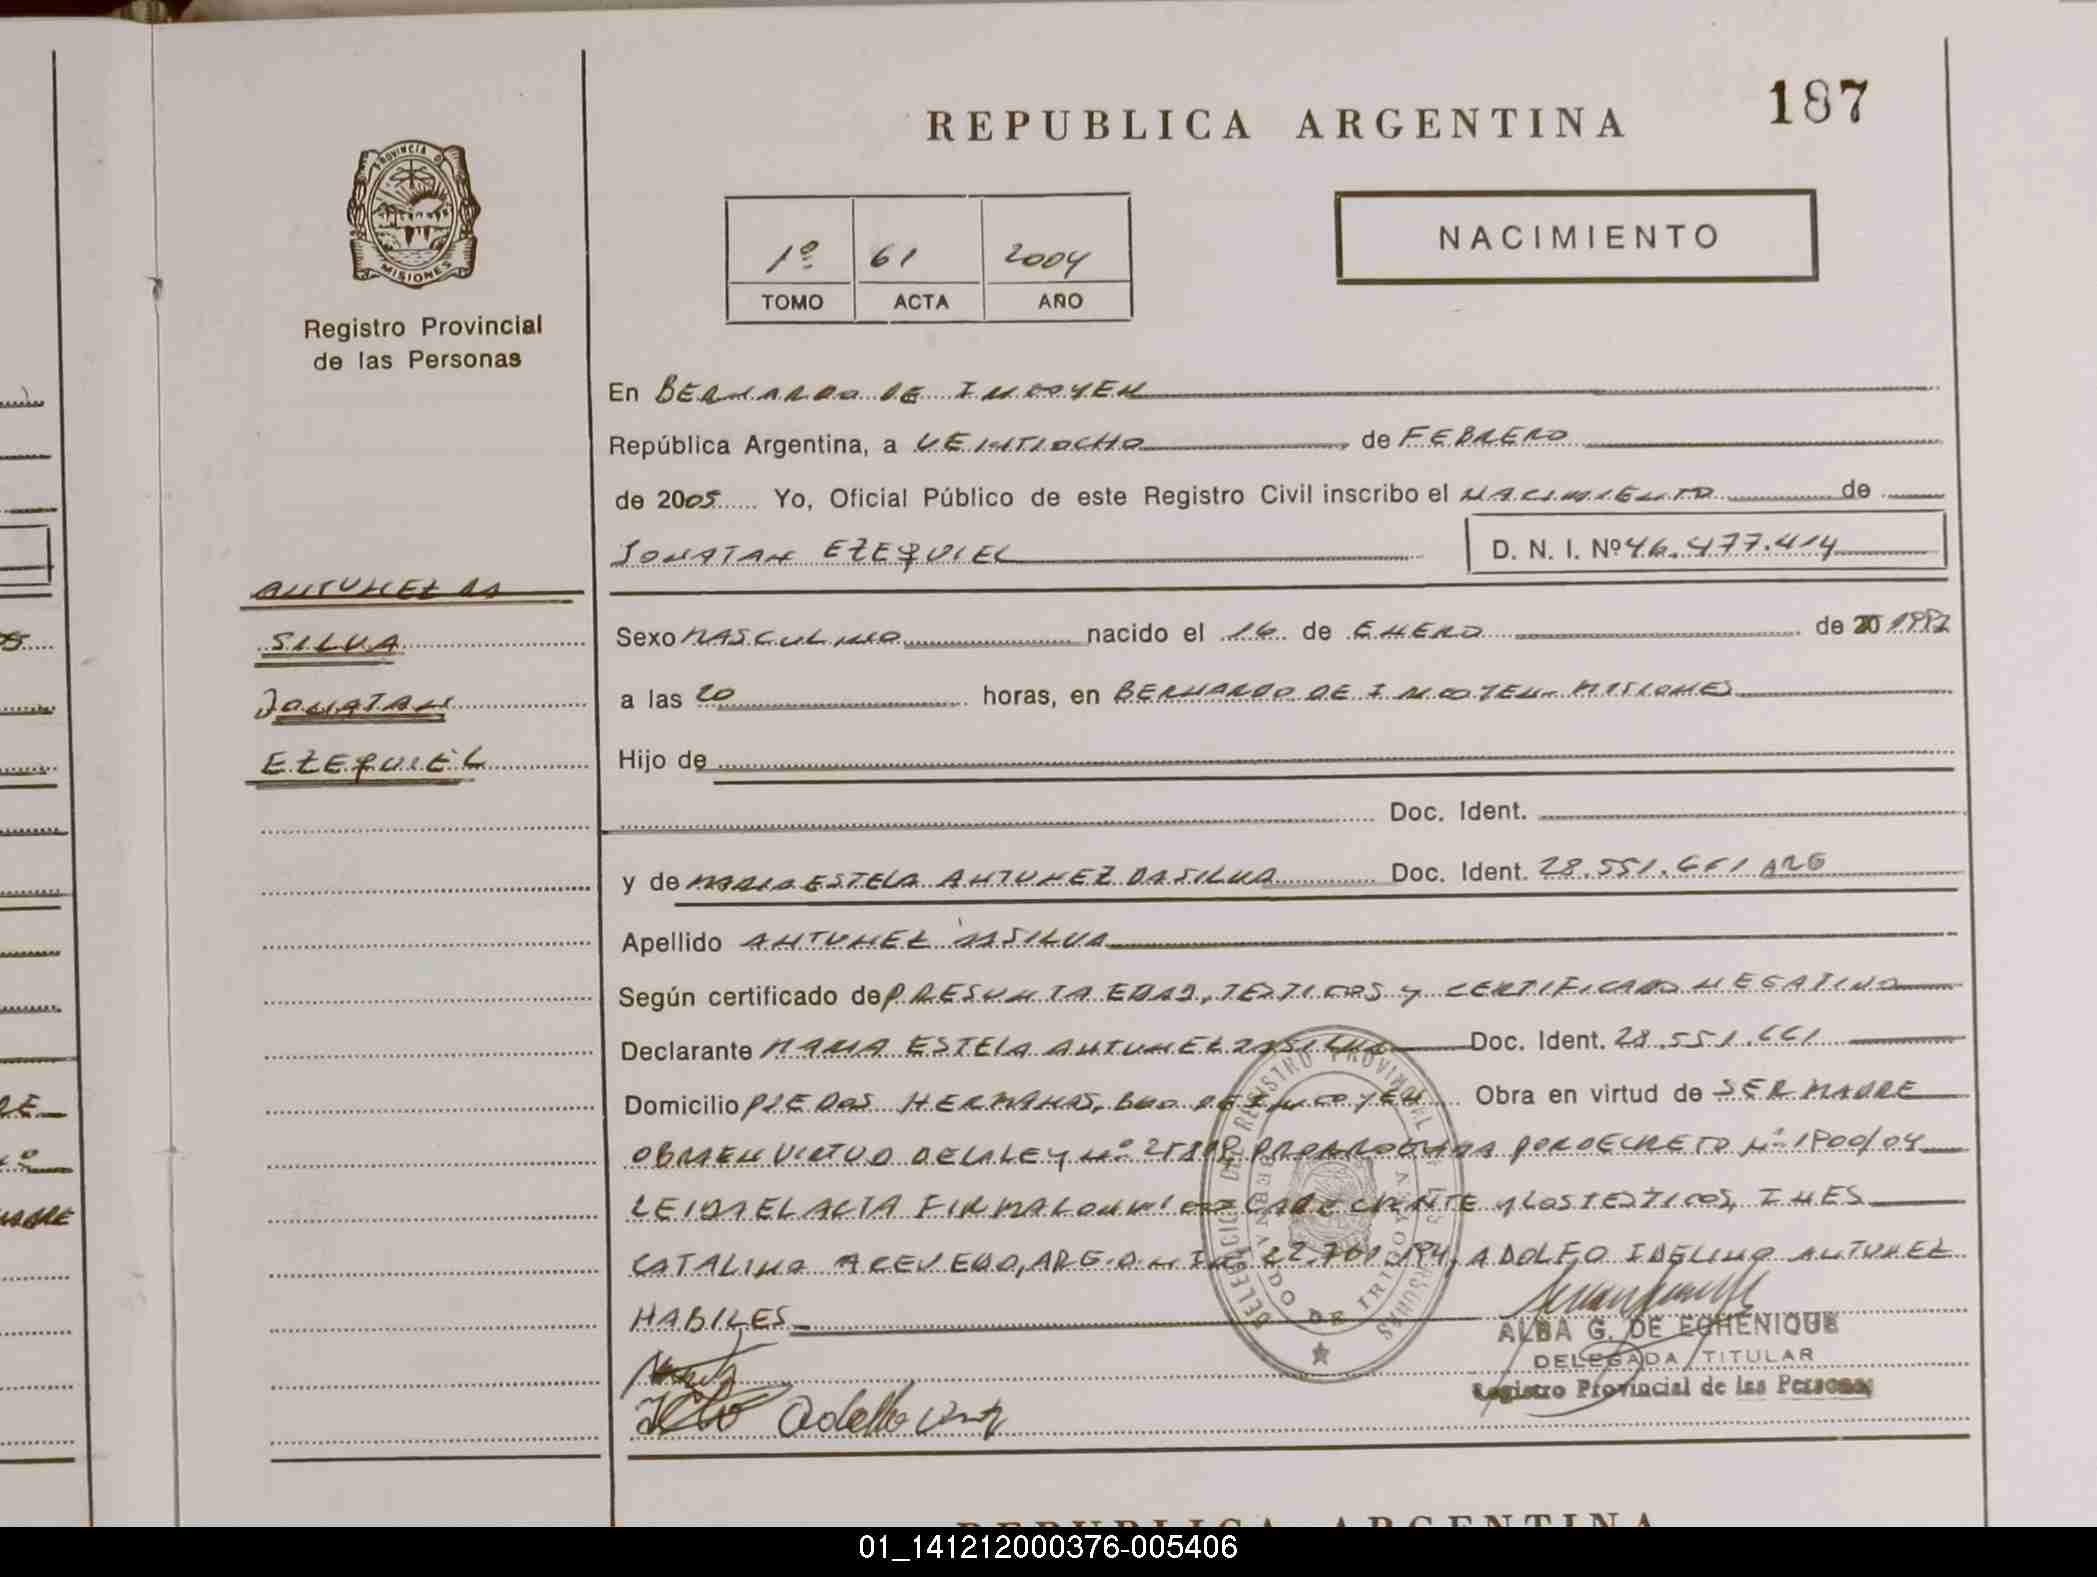 187
REPUBLICA ARGENTINA
PROVINCIA D
MISIONES
Registro Provincial
de las Personas
1º 61 2004
TOMO ACTA AÑO
NACIMIENTO
En BERNARDO DE IRIGOYEN
República Argentina, a VEINTIOCHO de FEBRERO
de 2005 Yo, Oficial Público de este Registro Civil inscribo el NACIMIENTO de
JONATAN EZEQUIEL D. N. I. Nº 46.477.414
ANTUNEZ DA
SILVA
JONATAN
EZEQUIEL
Sexo MASCULINO nacido el 16 de ENERO de 20 1992
a las 20 horas, en BERNARDO DE IRIGOYEN - MISIONES
Hijo de
Doc. Ident.
y de MARIA ESTELA ANTUNEZ DASILVA Doc. Ident. 28.551.661 ARG
Apellido ANTUNEZ DASILVA
Según certificado de PRESUNTA EDAD, TESTIGOS y CERTIFICADO NEGATIVO
Declarante MARIA ESTELA ANTUNEZ DASILVA Doc. Ident. 28.551.661
Domicilio PIEDAS HERMANAS, BDO DE IRIGOYEN Obra en virtud de SER MADRE
OBRA EN VIRTUD DE LA LEY Nº 25819 PRORROGADA POR DECRETO Nº 1800/04
LEIDA EL ACTA FIRMAN CONMIGO COMPARECIENTE Y LOS TESTIGOS, INES
CATALINA ACEVEDO, ARG. D N I Nº 22.701.194, ADOLFO IDELINO ANTUNEZ
HABILES
DELEGACION DEL REGISTRO PROVINCIAL DE LAS PERSONAS
BERNARDO DE IRIGOYEN
ALBA G. DE ECHENIQUE
DELEGADA TITULAR
Registro Provincial de las Personas
Adolfo
REPUBLICA ARGENTINA
01_141212000376-005406